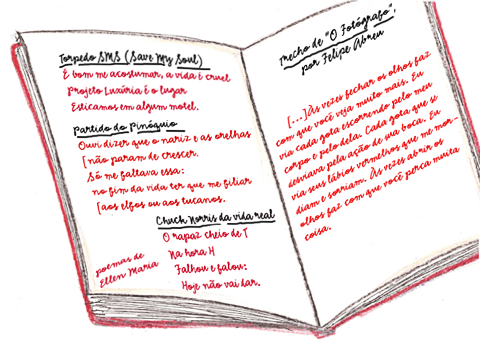 Torpedo SMS (Save My Soul)
É bom me acostumar, a vida é cruel
Projeto Luxúria é o lugar
Esticamos em algum motel.
Partido do Pinóquio
Ouvi dizer que o nariz e as orelhas
[não param de crescer.
Só me faltava essa:
no fim da vida ter que me filiar
[aos elfos ou aos tucanos.
Chuck Norris da vida real
O rapaz cheio de T
Na hora H
Falhou e falou:
Hoje não vai dar.
poemas de
Ellen Maria
Trecho de "O Fotógrafo",
por Felipe Abreu
[...] Às vezes fechar os olhos faz
com que você veja muito mais. Eu
via cada gota escorrendo pelo meu
corpo e pelo dela. Cada gota que se
desviava pela ação de sua boca. Eu
via seus lábios vermelhos que me mor-
diam e sorriam. Às vezes abrir os
olhos faz com que você perca muita
coisa.